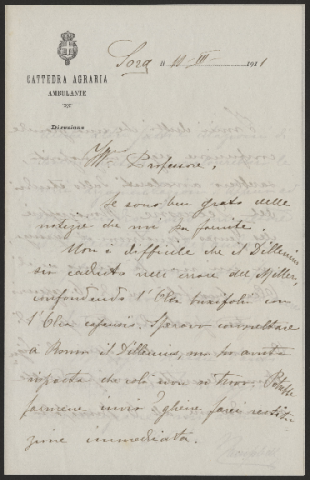 CATTEDRA AGRARIA
AMBULANTE
Direzione
Sora li 10-III- 1911
Ill. Professore,
Le sono ben grato delle
notizie che mi ha fornite.
Non è difficile che il Dillenius
sia caduto nell'errore del Miller,
confondendo l'Olea buxifolia con
l'Olea capensis. Speravo consultare
a Roma il Dillenius, ma ho avuta
risposta che colà non si trova. Potesse
farmene invio? Gliene farei restitu-
zione immediata.